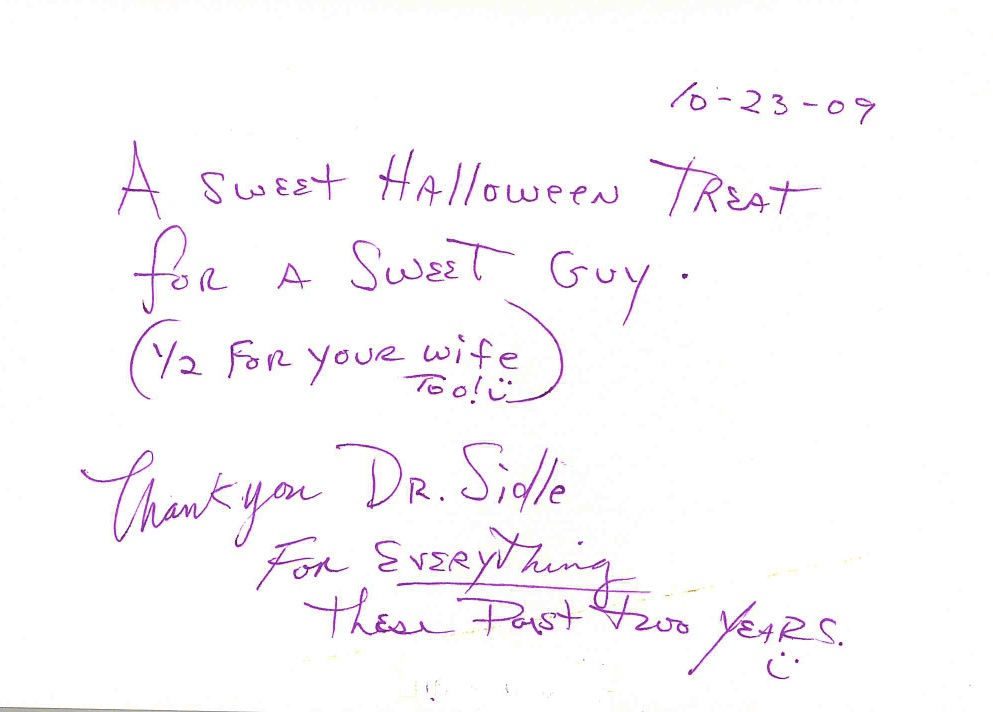 10-23-09
A SWEET HAlloween TREAT
for A SWEET GUY.
(1/2 FOR YOUR wife
TOO! ü)
Thank you DR. Sidle
FOR EVERYThing
these Past two YEARS.
ü